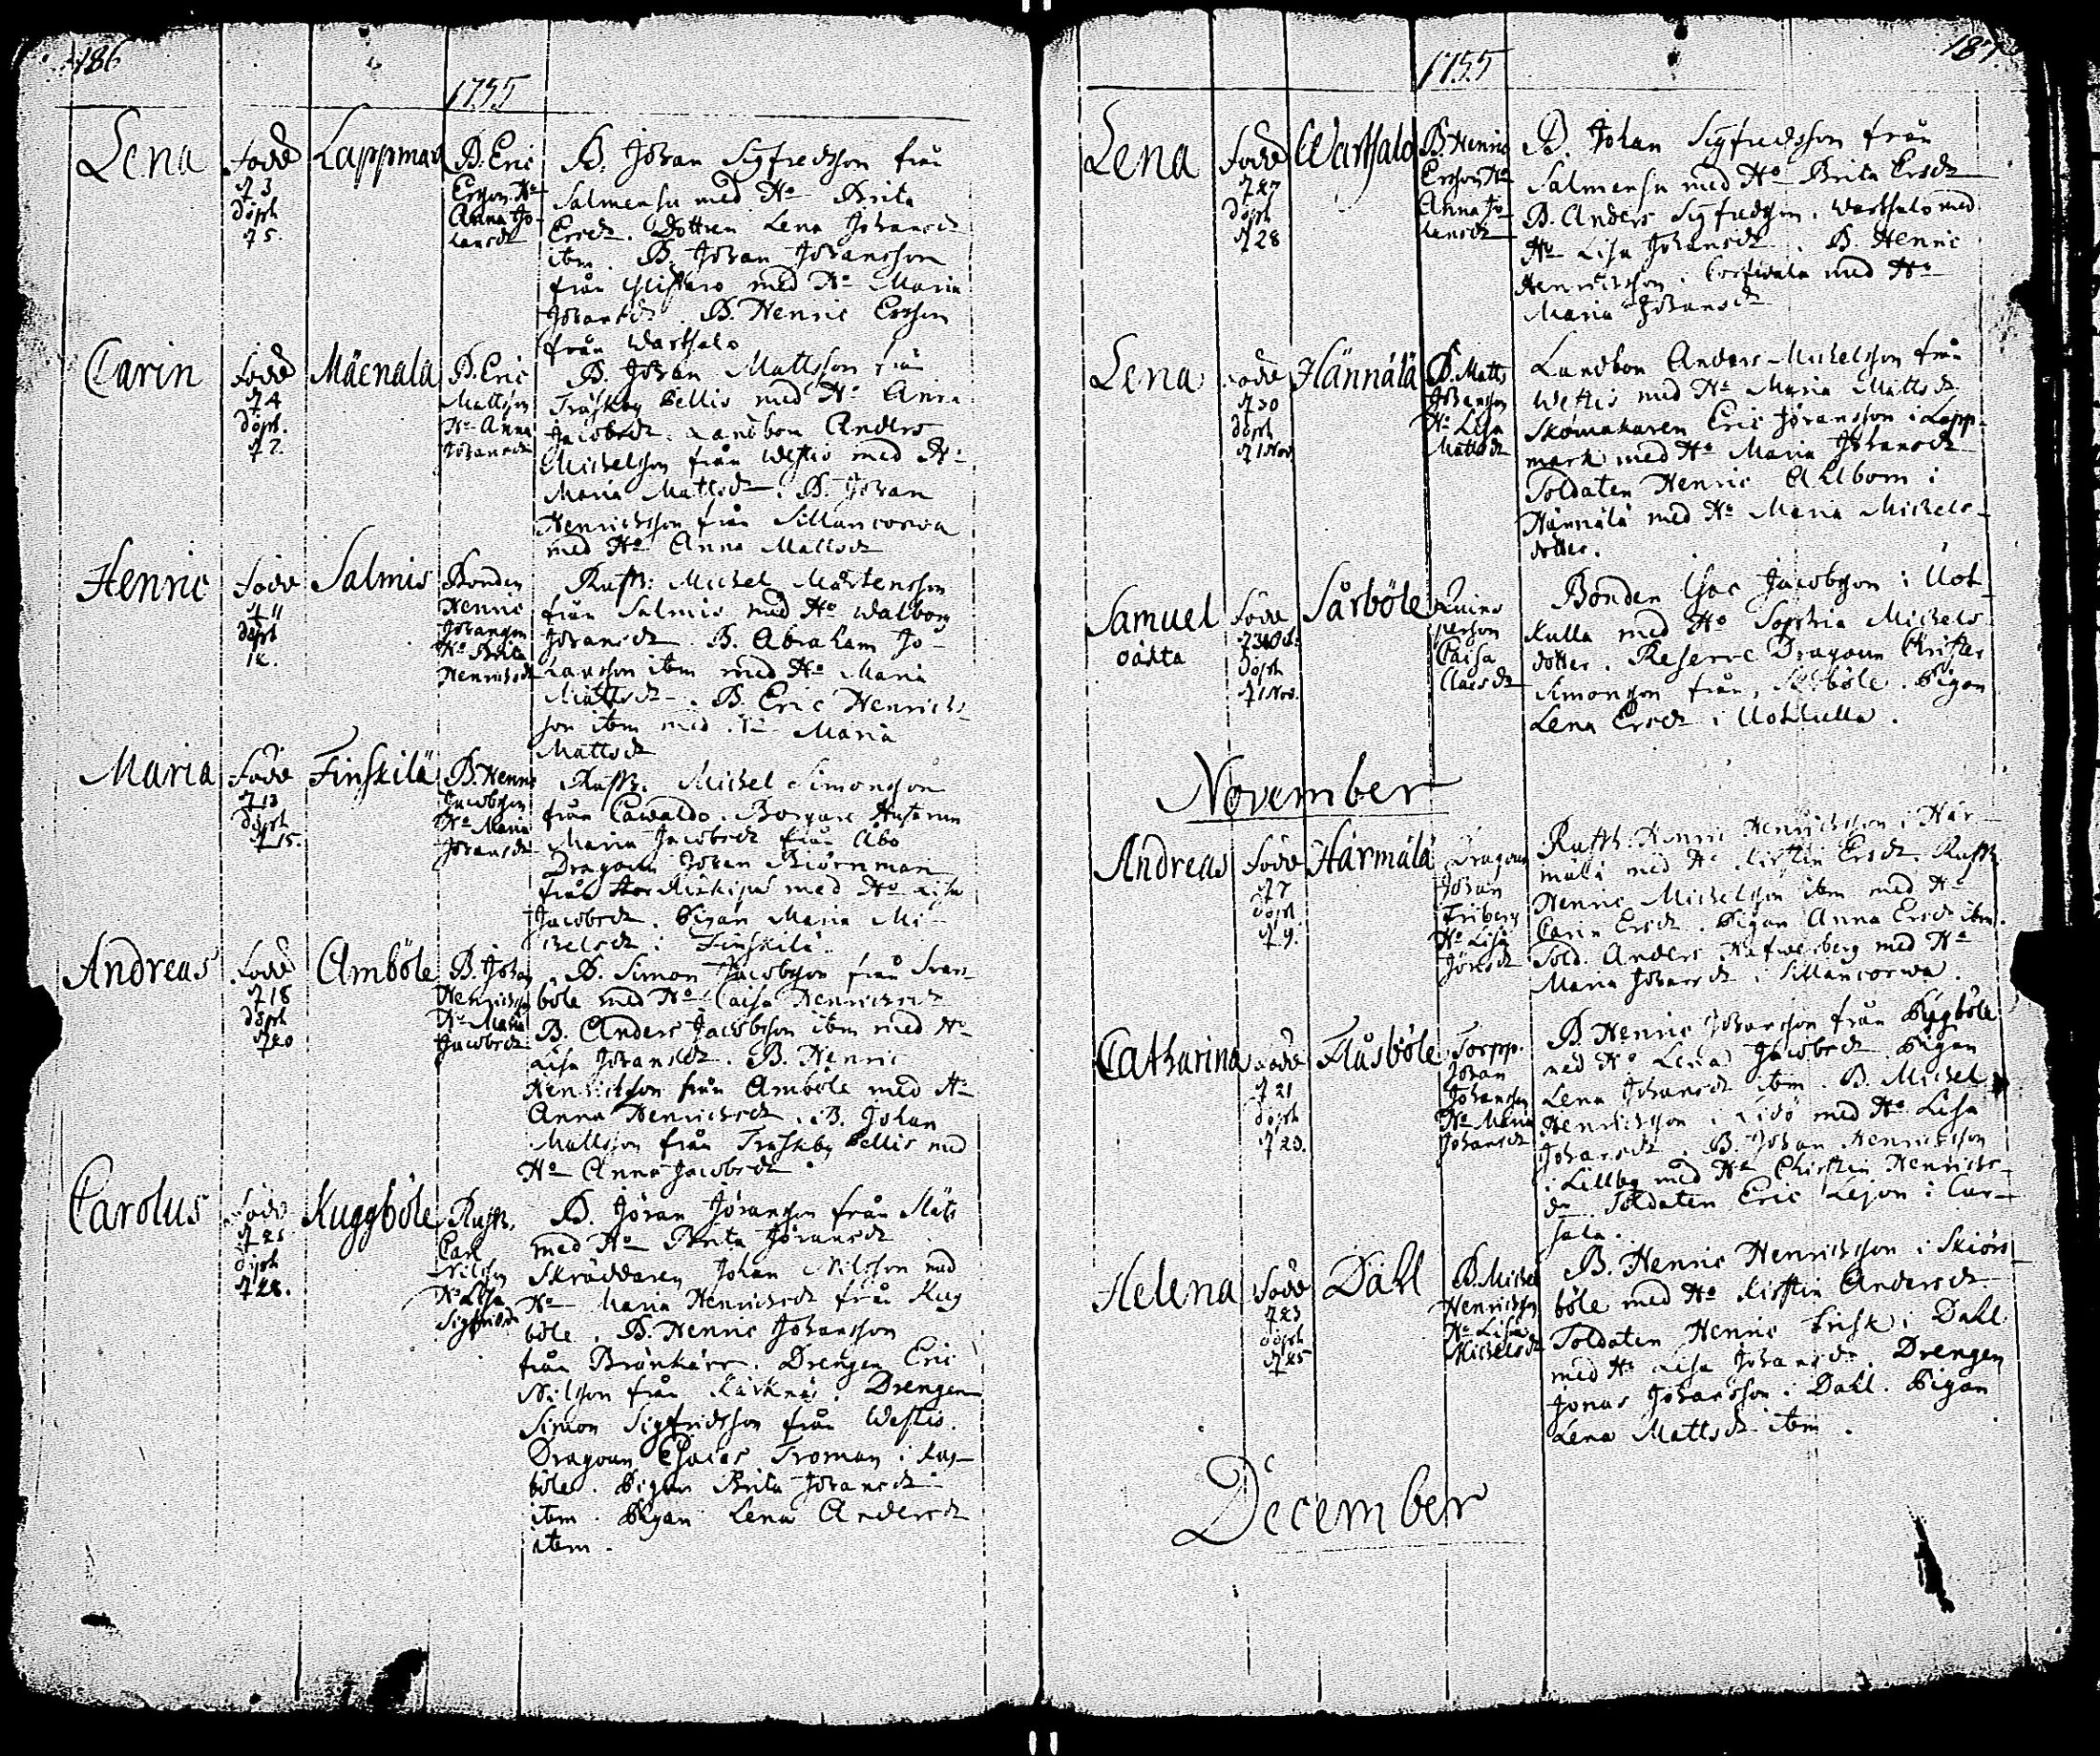 186
1755
Lena
Född
d 3
döpt
d 5.
Lappmark
B. Eric
Ersson. Hu
Anna Jo-
hansdr
B. Johan Sigfredsson från
Salmensu med Hu Brita
Ersdr. Dottren Lena Johansdr
ibm. B. Johan Johansson
från med Hu Maria
Johansdr. B. Henric Ersson
från Warthalo
Carin
Född
d 4
döpt.
d 7.
Mäcnala
B. Eric
Mattsson
Hu Anna
Johansdr
B. Johan Mattsson från
Träskby Pellis med Hu Anna
Jacobsdr. Landbon Anders
Michelsson från Westis med Hu
Maria Mattsdr. B. Johan
Henricsson från Sillancorva
med Hu Anna Mattsdr
Henric
Född
d 11
döpt
12.
Salmis
Bonden
Henric
Johansson
Hu Brita
Henricsdr
Rusth. Michel Mårtensson
från Salmis med Hu Walborg
Johansdr. B. Abraham Jo-
hansson ibm med Hu Maria
Mattsdr. B. Eric Henrics-
son ibm med Hu Maria
Mattsdr
Maria
Född
d 13
döpt
d 15.
Finskilä
B. Henric
Jacobsson
Hu Maria
Johansdr
Rusth. Michel Simonsson
från Cawaldo. Borgare Hustrun
Maria Jacobsdr från Åbo
Dragoun Johan Biörnman
från Stor med Hu Lisa
Jacobsdr. Pigan Maria Mi-
chelsdr i Finskilä.
Andreas
Född
d 18
döpt
d 20
Amböle
B. Johan
Henricsson
Hu Maria
Jacobsdr
B. Simon Jacobsson från Svart-
böle med Hu Caisa Henricsdr
B. Anders Jacobsson ibm med Hu
Lisa Johansdr. B. Henric
Henricsson från Amböle med Hu
Anna Henricsdr. B. Johan
Mattsson från Träskby Pellis med
Hu Anna Jacobsdr.
Carolus
Född
döpt
d 28.
Kuggböle
Rusth.
Carl
Nilsson
Hu Lisa
Sigfridsdr
B. Jöran Jöransson från
med Hu Brita Jöransdr
Skräddaren Johan Nilsson med
Hu Maria Henricsdr från Kug
böle. B. Henric Johansson
från Brönkärr. Drengen Eric
Nilsson från Kärknäs. Drengen
Simon Sigfridsson från Westis.
Dragoun Troman i Kug-
böle. Pigan Brita Johansdr
ibm. Pigan Lena Andersdr
ibm.
187.
1755
Lena
Född
d 27
döpt
d 28
Warthalo
B. Henric
Ersson Hu
Anna Jo-
hansdr
B. Johan Sigfredsson från
Salmensu med Hu Brita Ersdr
B. Anders Sigfredsson i Warthalo med
Hu Lisa Johansdr. B. Henric
Henricsson i med Hu
Maria Johansdr
Lena
Född
d 30
döpt
d 1 Nov.
Hännälä
B. Matts
Johansson
Hu Lisa
Mattsdr
Landbon Anders Michelsson från
Westis med Hu Maria Mattsdr
Skomakaren Eric Jöransson i Lapp-
mark med Hu Maria Johansdr
Soldaten Henric Ahlbom i
Hännälä med Hu Maria Michels-
dotter.
Samuel
oäkta
Född
d 31 Oct.
döpt
d 1 Nov.
Sårböle
Quins
person
Caisa
Claesdr
Bonden Isac Jacobsson i Not
kulla med Hu Sophia Michels-
dotter. Reserve Dragoun Christer
Simonsson från Sårböle. Pigan
Lena Ersdr i Notkulla.
November
Andreas
Född
d 7
döpt
d 9.
Harmälä
Dragoun
Johan
Friberg
Hu Lisa
Jönsdr
Rusth. Henric Henricsson i Har-
mälä med Hu Kirstin Ersdr. Rusth.
Henric Michelsson ibm med Hu
Carin Ersdr. Pigan Anna Ersdr ibm.
Sold. Anders Hafwerberg med Hu
Maria Johansdr i Sillancorwa.
Catharina
Född
d 21
döpt
d 23.
Flåsböle
Torpp.
Johan
Johansson
Hu Maria
Johansdr
B Henric Johansson från Byggböle
med Hu Lena Jacobsdr. Pigan
Lena Johansdr ibm. B. Michel
Henricsson i Lidö med Hu Lisa
Johansdr. B. Johan Henricsson
i Lillby med Hu Christin Henrics-
dr. Soldaten Eric Lejon i Car-
sala.
Helena
Född
d 23
döpt
d 25
Dahl
B. Michel
Henricsson
Hu Lisa
Michelsdr
B. Henric Henricsson i Skiörs
böle med Hu Kirstin Andersdr
Soldaten Henric Frisk i Dahl
med Hu Lisa Johansdr. Drengen
Jonas Johansson i Dahl. Pigan
Lena Mattsdr ibm.
December